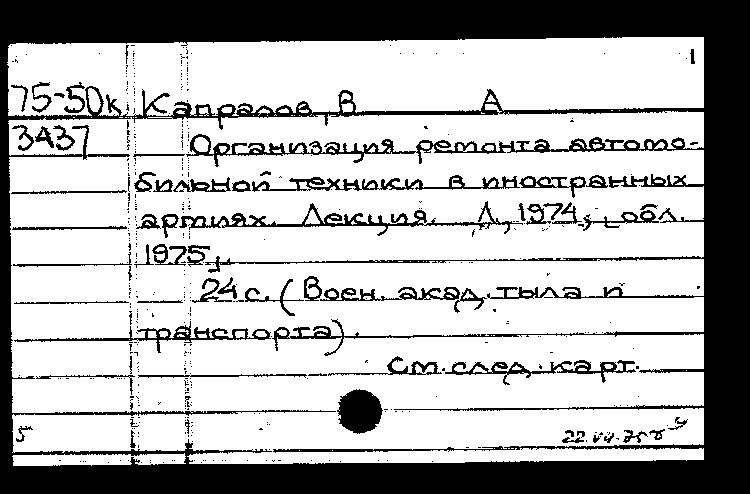 1
75-50к Капралов, В А
3437 Организация ремонта автомо-
бильной техники в иностранных
армиях. Лекция. Л., 1974, [обл.
1975].
24 с. (Воен. акад. тыла и
транспорта).
См. след. карт.
5